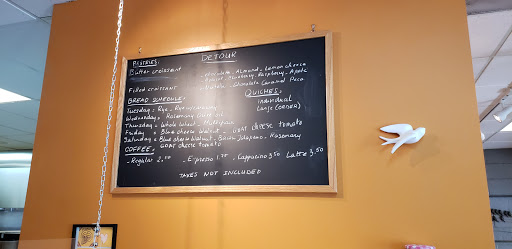 DETOUR
PASTRIES:
Butter croissant - Chocolate - Almond - Lemon cheese
Apricot - Blueberry - Raspberry - Apple
Filled croissant - Chocolate Caramel Peca
QUICHES:
BREAD SCHEDULE: individual
Tuesday = Rye - large (order)
Wednesday = Rosemary olive oil
Thursday = Whole wheat - Multigrain
Friday = Blue cheese walnut - Goat cheese tomato
Saturday = Blue cheese walnut - Jalapeno - Rosemary
COFFEE: Goat cheese tomato
- Regular 2.00 - Espresso 1.75 - Cappucino 3.50 Latte 3.50
TAXES NOT INCLUDED